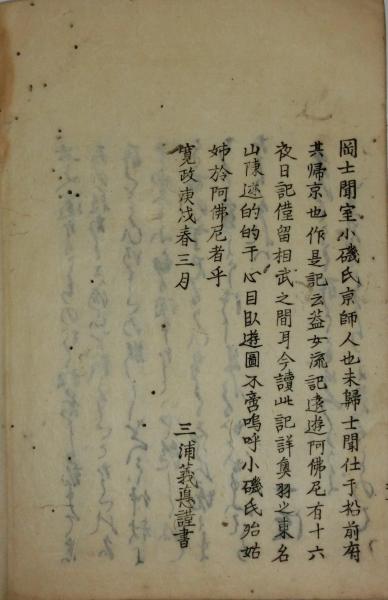 岡士聞室小磯氏京師人也未歸士聞仕于松前府
其帰京也作是記云蓋女流記遠遊阿佛尼有十六
夜日記僅留相武之間耳今讀此記詳奥羽之東名
山陳迹的的于心目臥遊圖不啻嗚呼小磯氏殆姑
姉於阿佛尼者乎
寛政庚戌春三月
三浦義悳謹書